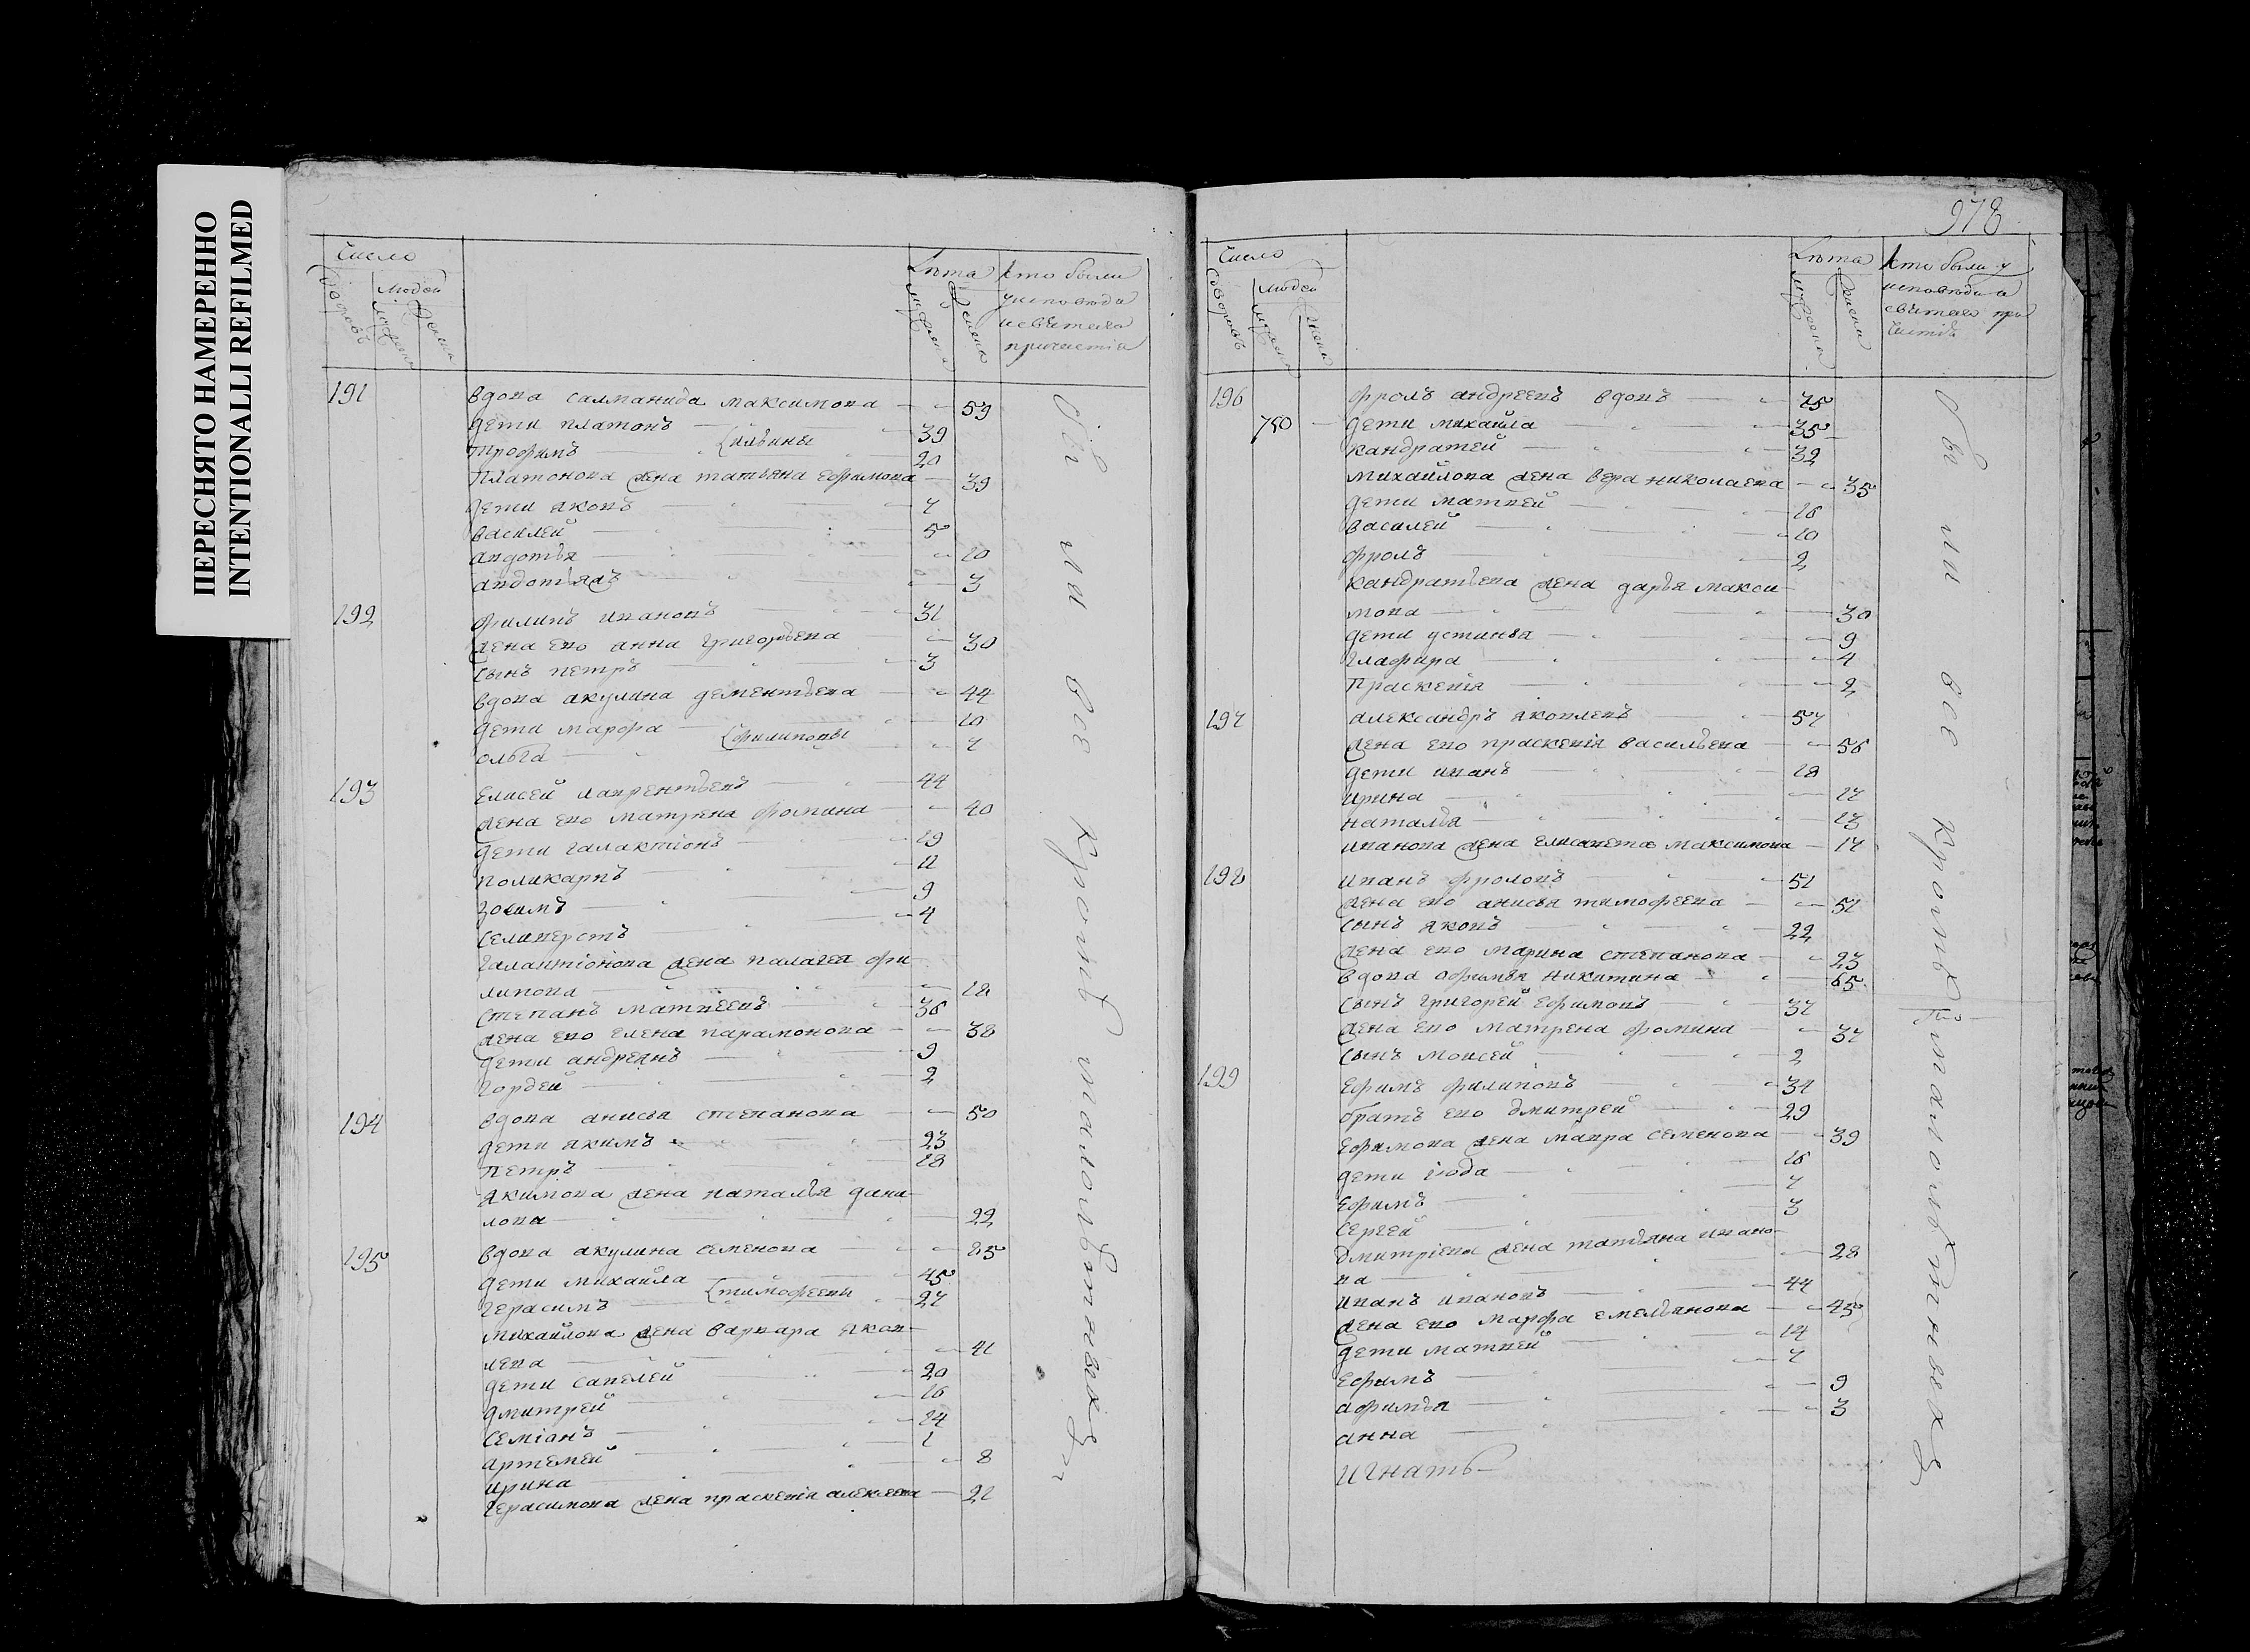 ПЕРЕСНЯТО НАМЕРЕННО
INTENTIONALLI REFILMED
Число
людей
Лѣта
кто были
у исповѣди
и свѣтаго
причастія
191
вдова салманида максимова 59
дети платонъ 39
трофимъ {ильины 20
платонова жена татьяна ефимова 39
дети яковъ 7
василей 5
авдотья 10
3
192
филипъ ивановъ 31
жена ево анна григорьева 30
сынъ петръ 3
вдова акулина дементьева 44
дети марфа 10
ольга {филиповы 7
193
елисей лаврентьевъ 44
жена ево матрена фомина 40
дети галактіонъ 19
поликарпъ 11
зосимъ 9
селиверстъ 4
галактіонова жена палагея фи-
липова 18
степанъ матвеевъ 36
жена ево елена парамонова 38
дети андреянъ 9
гордей 2
194
вдова анисья степанова 50
дети якимъ 23
петръ 18
якимова жена наталья дани-
лова 22
195
вдова акулина семенова
дети михайла 45
герасимъ {тимофеевы 27
михайлова жена варвара яков-
лева 41
дети савелей 20
дмитрей 16
семіонъ 14
артемей 1
ирина 8
герасимова жена прасковія алексеева 21
были все кроме
978
Число
людей
Лѣта
кто были у
исповѣди и
свѣтаго при
частія
196
фролъ андреевъ вдовъ 75
750 дети михайла 35
кандратей 32
михайлова жена вера николаева 35
дети матвей 16
василей 10
фролъ 2
кандратьева жена дарья макси-
мова 30
дети устинья 9
глафира 4
прасковія 2
197
александръ яковлевъ 57
жена ево прасковія васильева 56
дети иванъ 18
ирина 17
наталья 13
иванова жена елисавета максимова 17
198
иванъ фроловъ 51
жена ево анисья тимофеева 51
сынъ яковъ 22
жена ево марина степанова 23
вдова афимья никитина 65
сынъ григорей ефимовъ 37
жена ево матрена фомина 37
сынъ моисей 2
199
ефимъ филиповъ 34
братъ ево дмитрей 29
ефимова жена мавра семенова 39
дети іюда 16
ефимъ 7
сергей 3
дмитріева жена татьяна ивано-
ва 28
иванъ ивановъ 44
жена ево марфа емельянова 45
дети матвей 14
ефимъ 7
афимья 9
анна 3
игнать
были все кроме